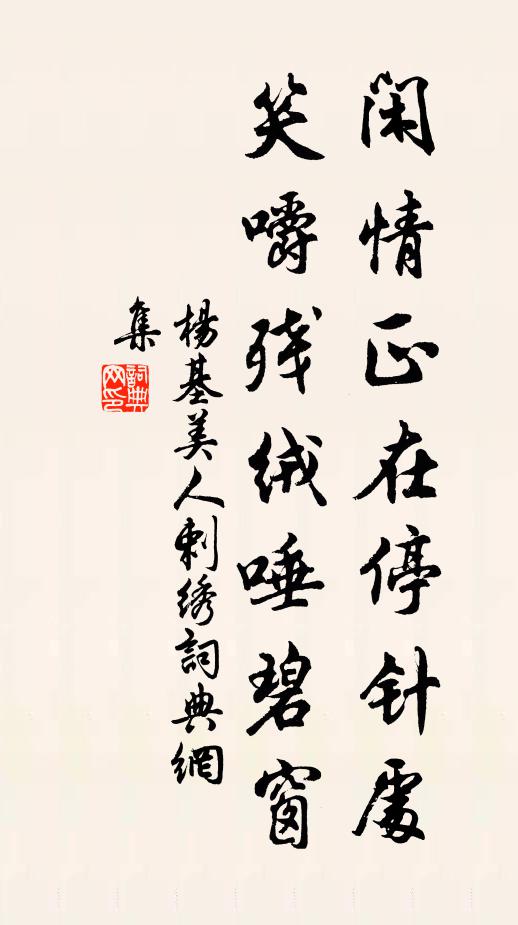 闲情正在停针處
笑嚼残绒唾碧窗
杨基美人刺绣詞典網
集
詞典网印